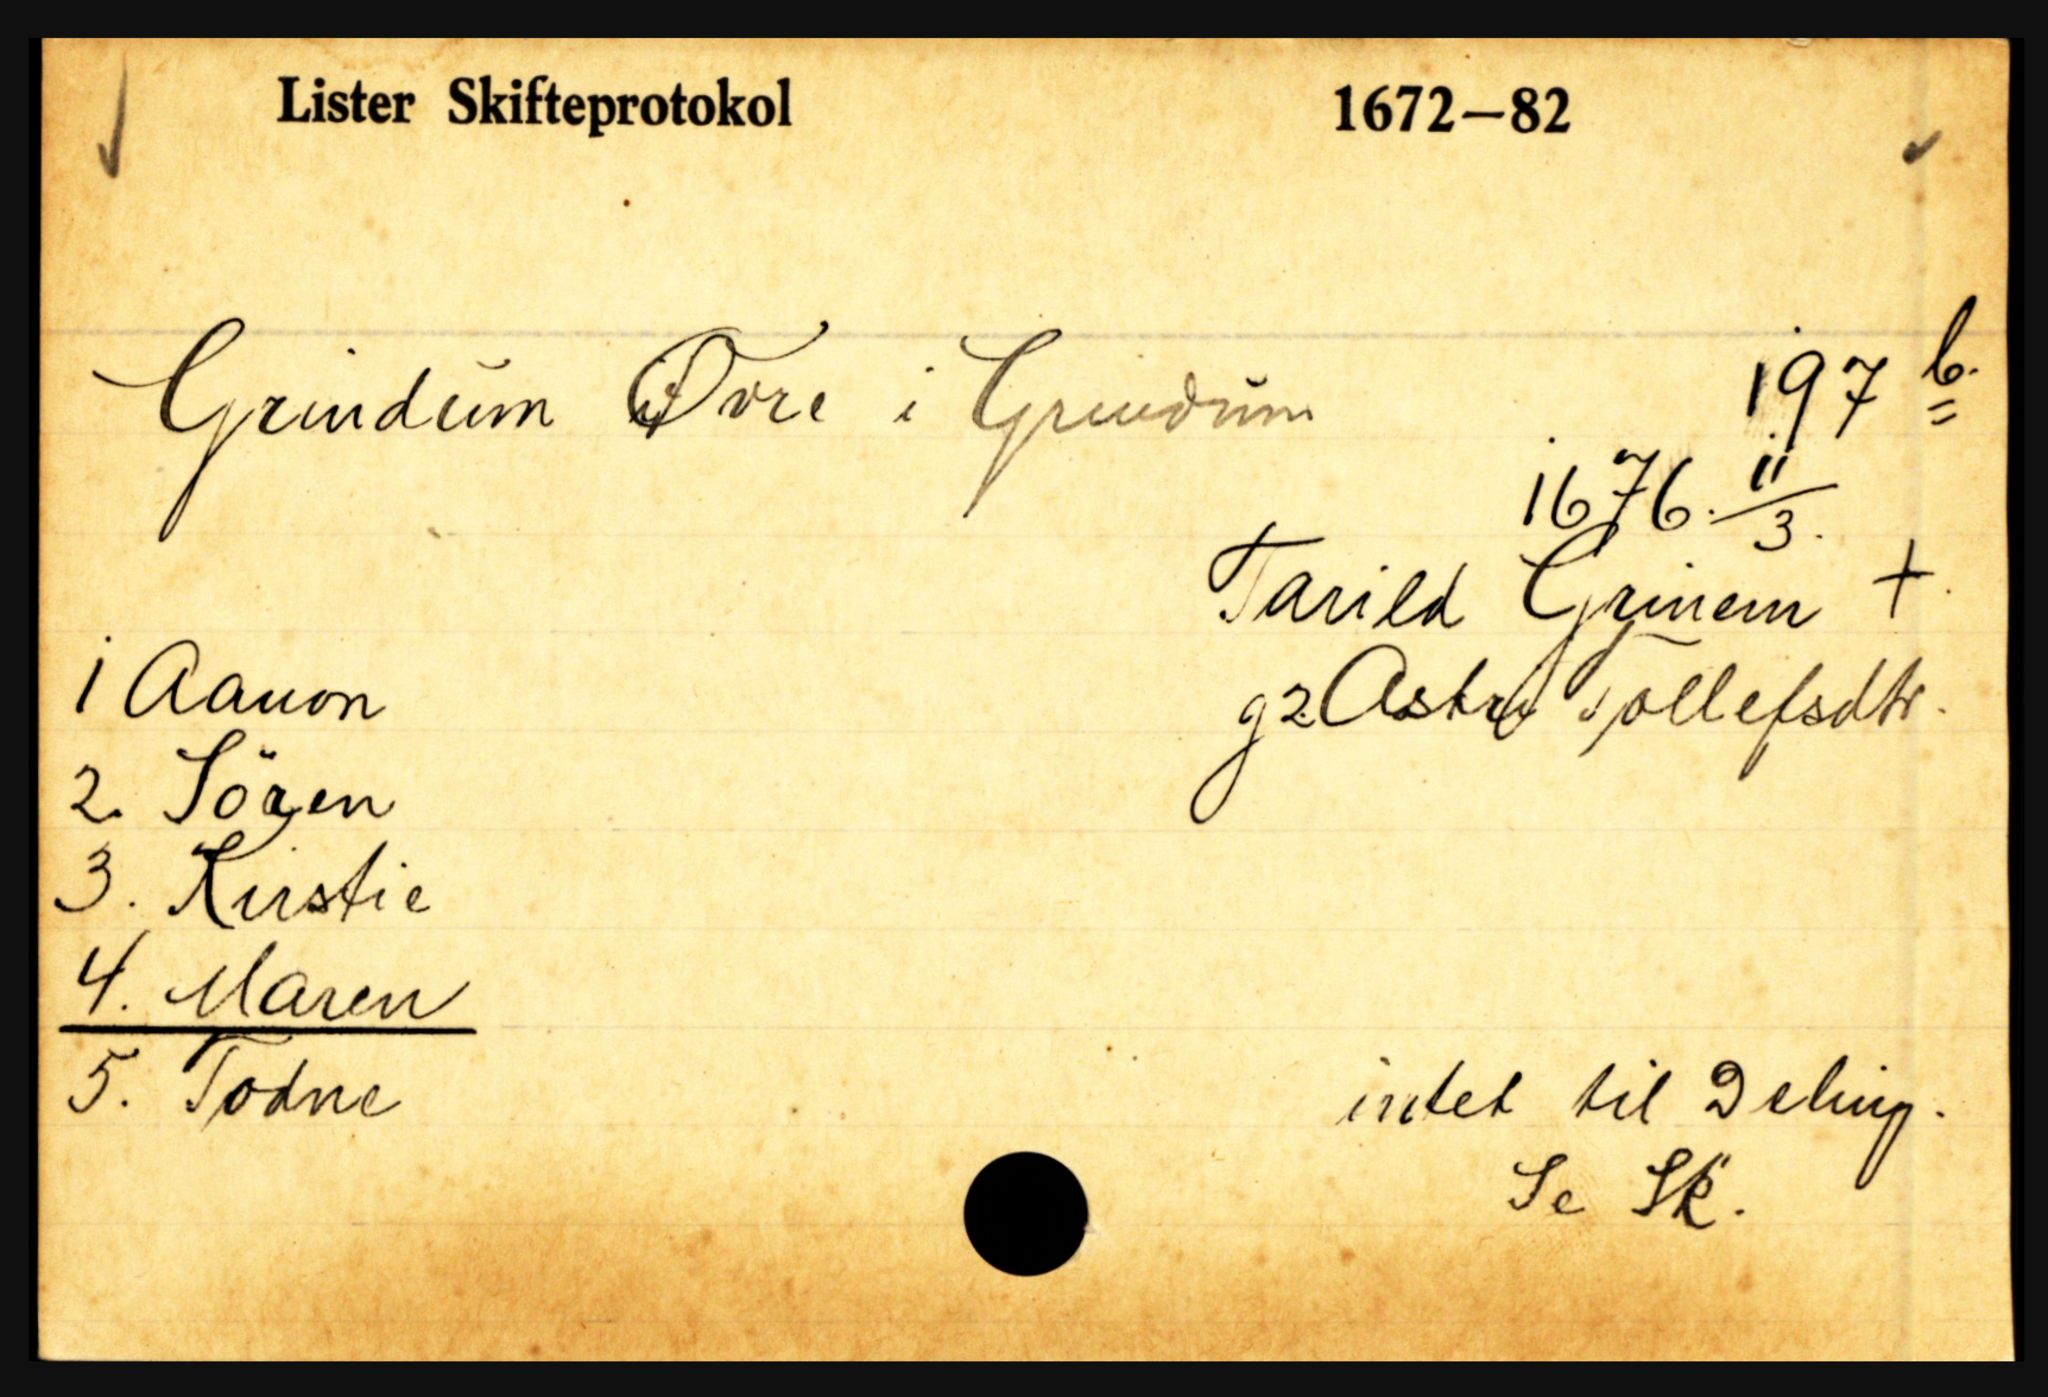 Lister Skifteprotokol 1672–82
Grindum Øvre i Grindum 197 b.
1676. 11/3.
Tarild Grinem +
g2. Astri Tollefsdtr.
1 Aanon
2. Sören
3. Kirstie
4. Maren
5. Todne
intet til Deling.
Se Sk.